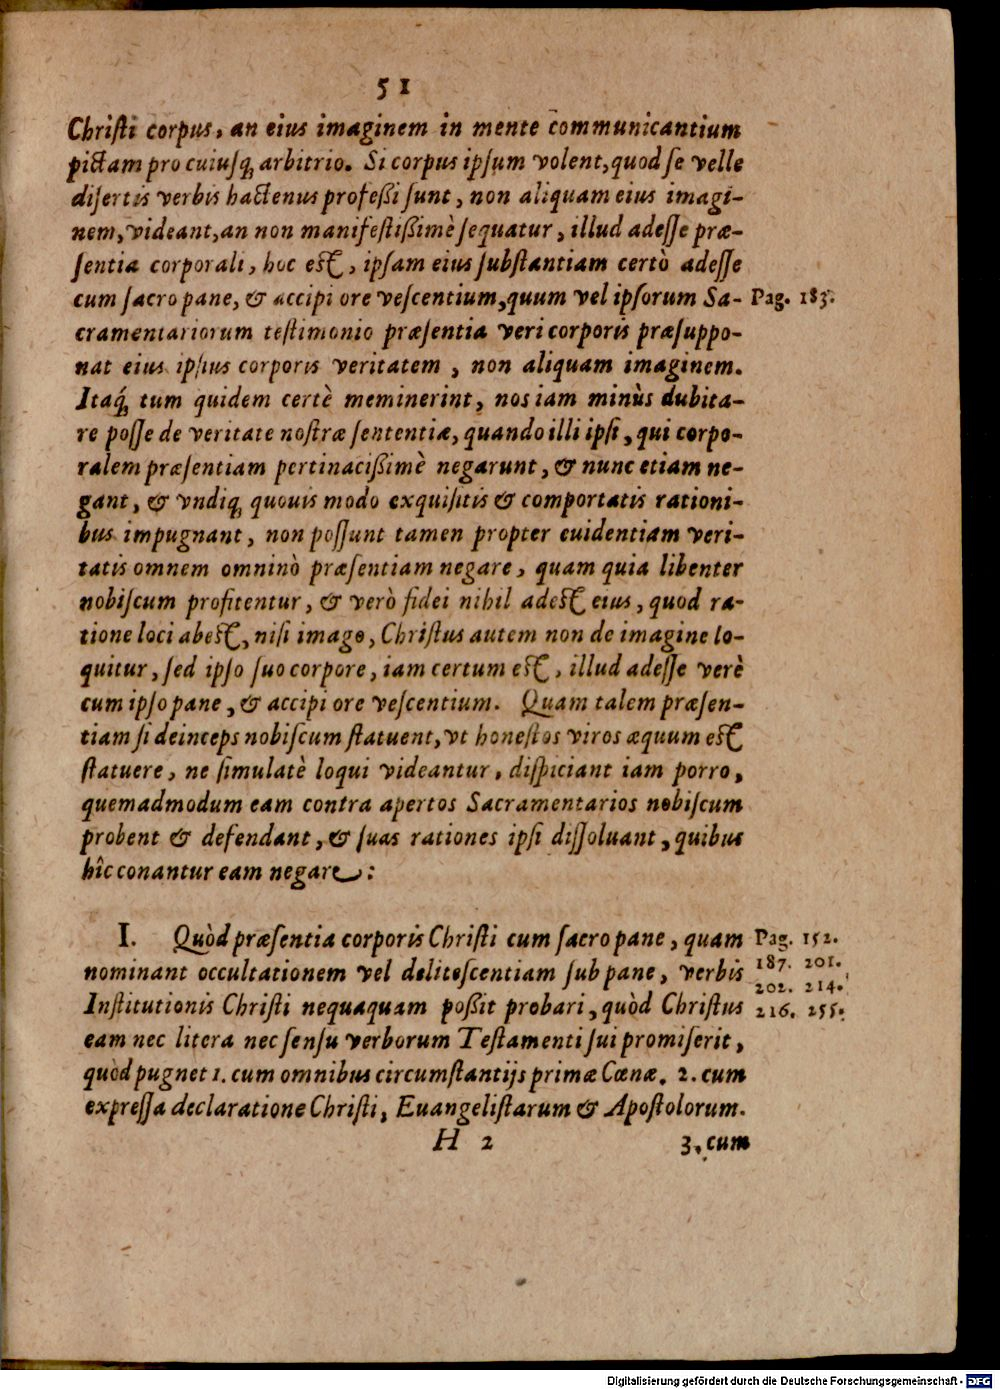 51
Chriſti corpus, an eius imaginem in mente communicantium
pictam pro cuiuſq́ arbitrio. Si corpus ipſum volent, quod ſe velle
diſertis verbis hactenus profeßi ſunt, non aliquam eius imagi-
nem, videant, an non manifeſtißimè ſequatur, illud adeſſe præ-
ſentia corporali, hoc eſt, ipſam eius ſubſtantiam certò adeſſe
cum ſacro pane, & accipi ore veſcentium, quum vel ipſorum Sa- Pag. 183.
cramentariorum teſtimonio præſentia veri corporis præſuppo-
nat eius ipſius corporis veritatem, non aliquam imaginem.
Itaq́ tum quidem certè meminerint, nos iam minùs dubita-
re poſſe de veritate noſtræ ſententiæ, quando illi ipſi, qui corpo-
ralem præſentiam pertinacißimè negarunt, & nunc etiam ne-
gant, & vndiq́ quouis modo exquiſitis & comportatis rationi-
bus impugnant, non poſſunt tamen propter euidentiam veri-
tatis omnem omninò præſentiam negare, quam quia libenter
nobiſcum profitentur, & verò fidei nihil adeſt eius, quod ra-
tione loci abeſt, niſi imago, Chriſtus autem non de imagine lo-
quitur, ſed ipſo ſuo corpore, iam certum eſt, illud adeſſe verè
cum ipſo pane, & accipi ore veſcentium. Quam talem præſen-
tiam ſi deinceps nobiſcum ſtatuent, vt honeſtos viros æquum eſt
ſtatuere, ne ſimulatè loqui videantur, diſpiciant iam porro,
quemadmodum eam contra apertos Sacramentarios nobiſcum
probent & defendant, & ſuas rationes ipſi diſſoluant, quibus
hîc conantur eam negare:
I. Quòd præſentia corporis Chriſti cum ſacro pane, quam Pag. 152.
nominant occultationem vel deliteſcentiam ſub pane, verbis 187. 201.
202. 214.
Inſtitutionis Chriſti nequaquam poßit probari, quòd Chriſtus 216. 255.
eam nec litera nec ſenſu verborum Teſtamenti ſui promiſerit,
quòd pugnet 1. cum omnibus circumſtantijs primæ Cœnæ. 2. cum
expreſſa declaratione Chriſti, Euangeliſtarum & Apoſtolorum.
H 2 3. cum
Digitalisierung gefördert durch die Deutsche Forschungsgemeinschaft - DFG